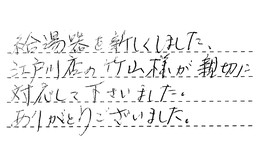 給湯器を新しくしました、
江戸川店の竹山様が親切に
対応して下さいました。
ありがとうございました。